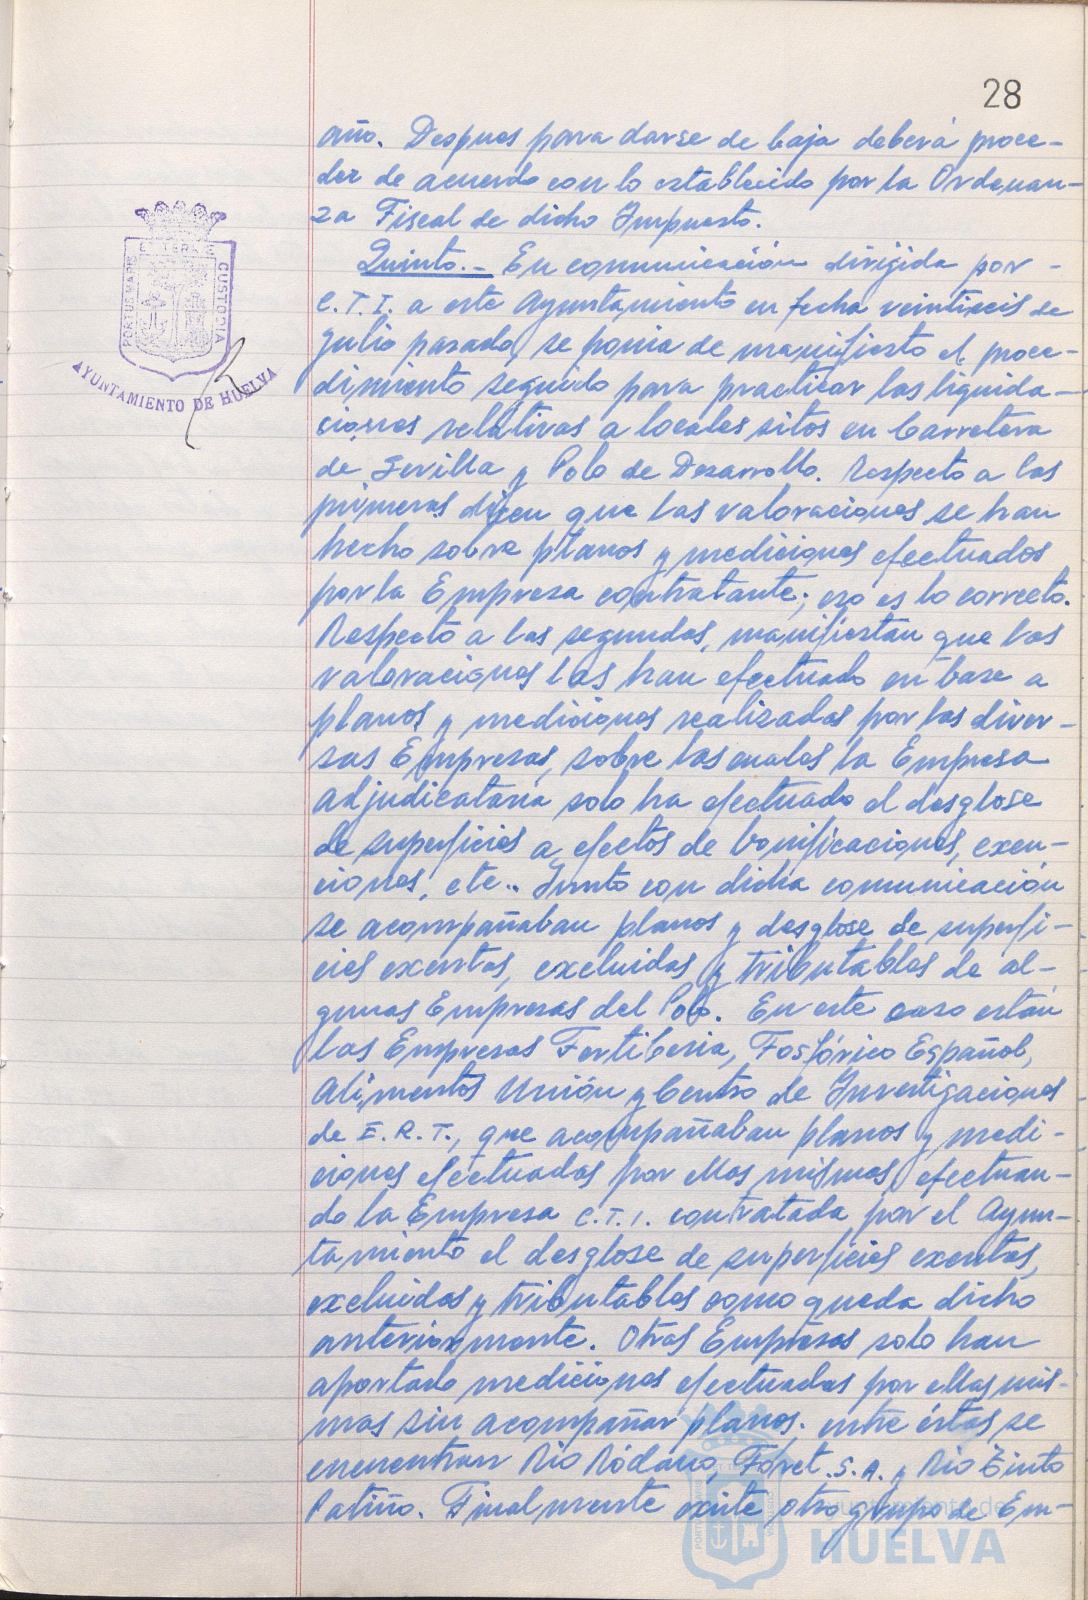 28
año. Despues para darse de baja deberá proce-
der de acuerdo con lo establecido por la Ordenan-
za Fiscal de dicho Impuesto.
Quinto.- En comunicación dirigida por -
C.T.I. a este Ayuntamiento en fecha veintiseis de
Julio pasado, se ponia de manifiesto el proce-
dimiento seguido para practicar las liquida-
ciones relativas a locales sitos en Carretera
de Sevilla y Polo de Desarrollo. Respecto a las
primeras dicen que las valoraciones se han
hecho sobre planos y mediciones efectuados
por la Empresa contratante; eso es lo correcto.
Respecto a las segundas, manifiestan que las
valoraciones las han efectuado en base a
planos y mediciones realizadas por las diver-
sas Empresas, sobre las cuales la Empresa
adjudicataria solo ha efectuado el desglose
de superficies a efectos de bonificaciones, exen-
ciones, etc.. Junto con dicha comunicación
se acompañaban planos y desglose de superfi-
cies exentas, excluidas y tributables de al-
gunas Empresas del Polo. En este caso están
las Empresas Fertiberia, Fosfórico Español,
Alimentos Unión y Centro de Investigaciones
de E.R.T., que acompañaban planos y medi-
ciones efectuadas por ellas mismas, efectuan-
do la Empresa C.T.I. contratada por el Ayun-
tamiento el desglose de superficies exentas,
excluidas y tributables como queda dicho
anteriormente. Otras Empresas solo han
aportado mediciones efectuadas por ellas mis-
mas sin acompañar planos. entre éstas se
encuentran Rio Ródano, Foret S.A. y Rio Tinto
Patiño. Finalmente existe otro grupo de Em-
PORTUS MARIS
ET TERRE
CUSTODIA
AYUNTAMIENTO DE HUELVA
ayuntamiento de
HUELVA